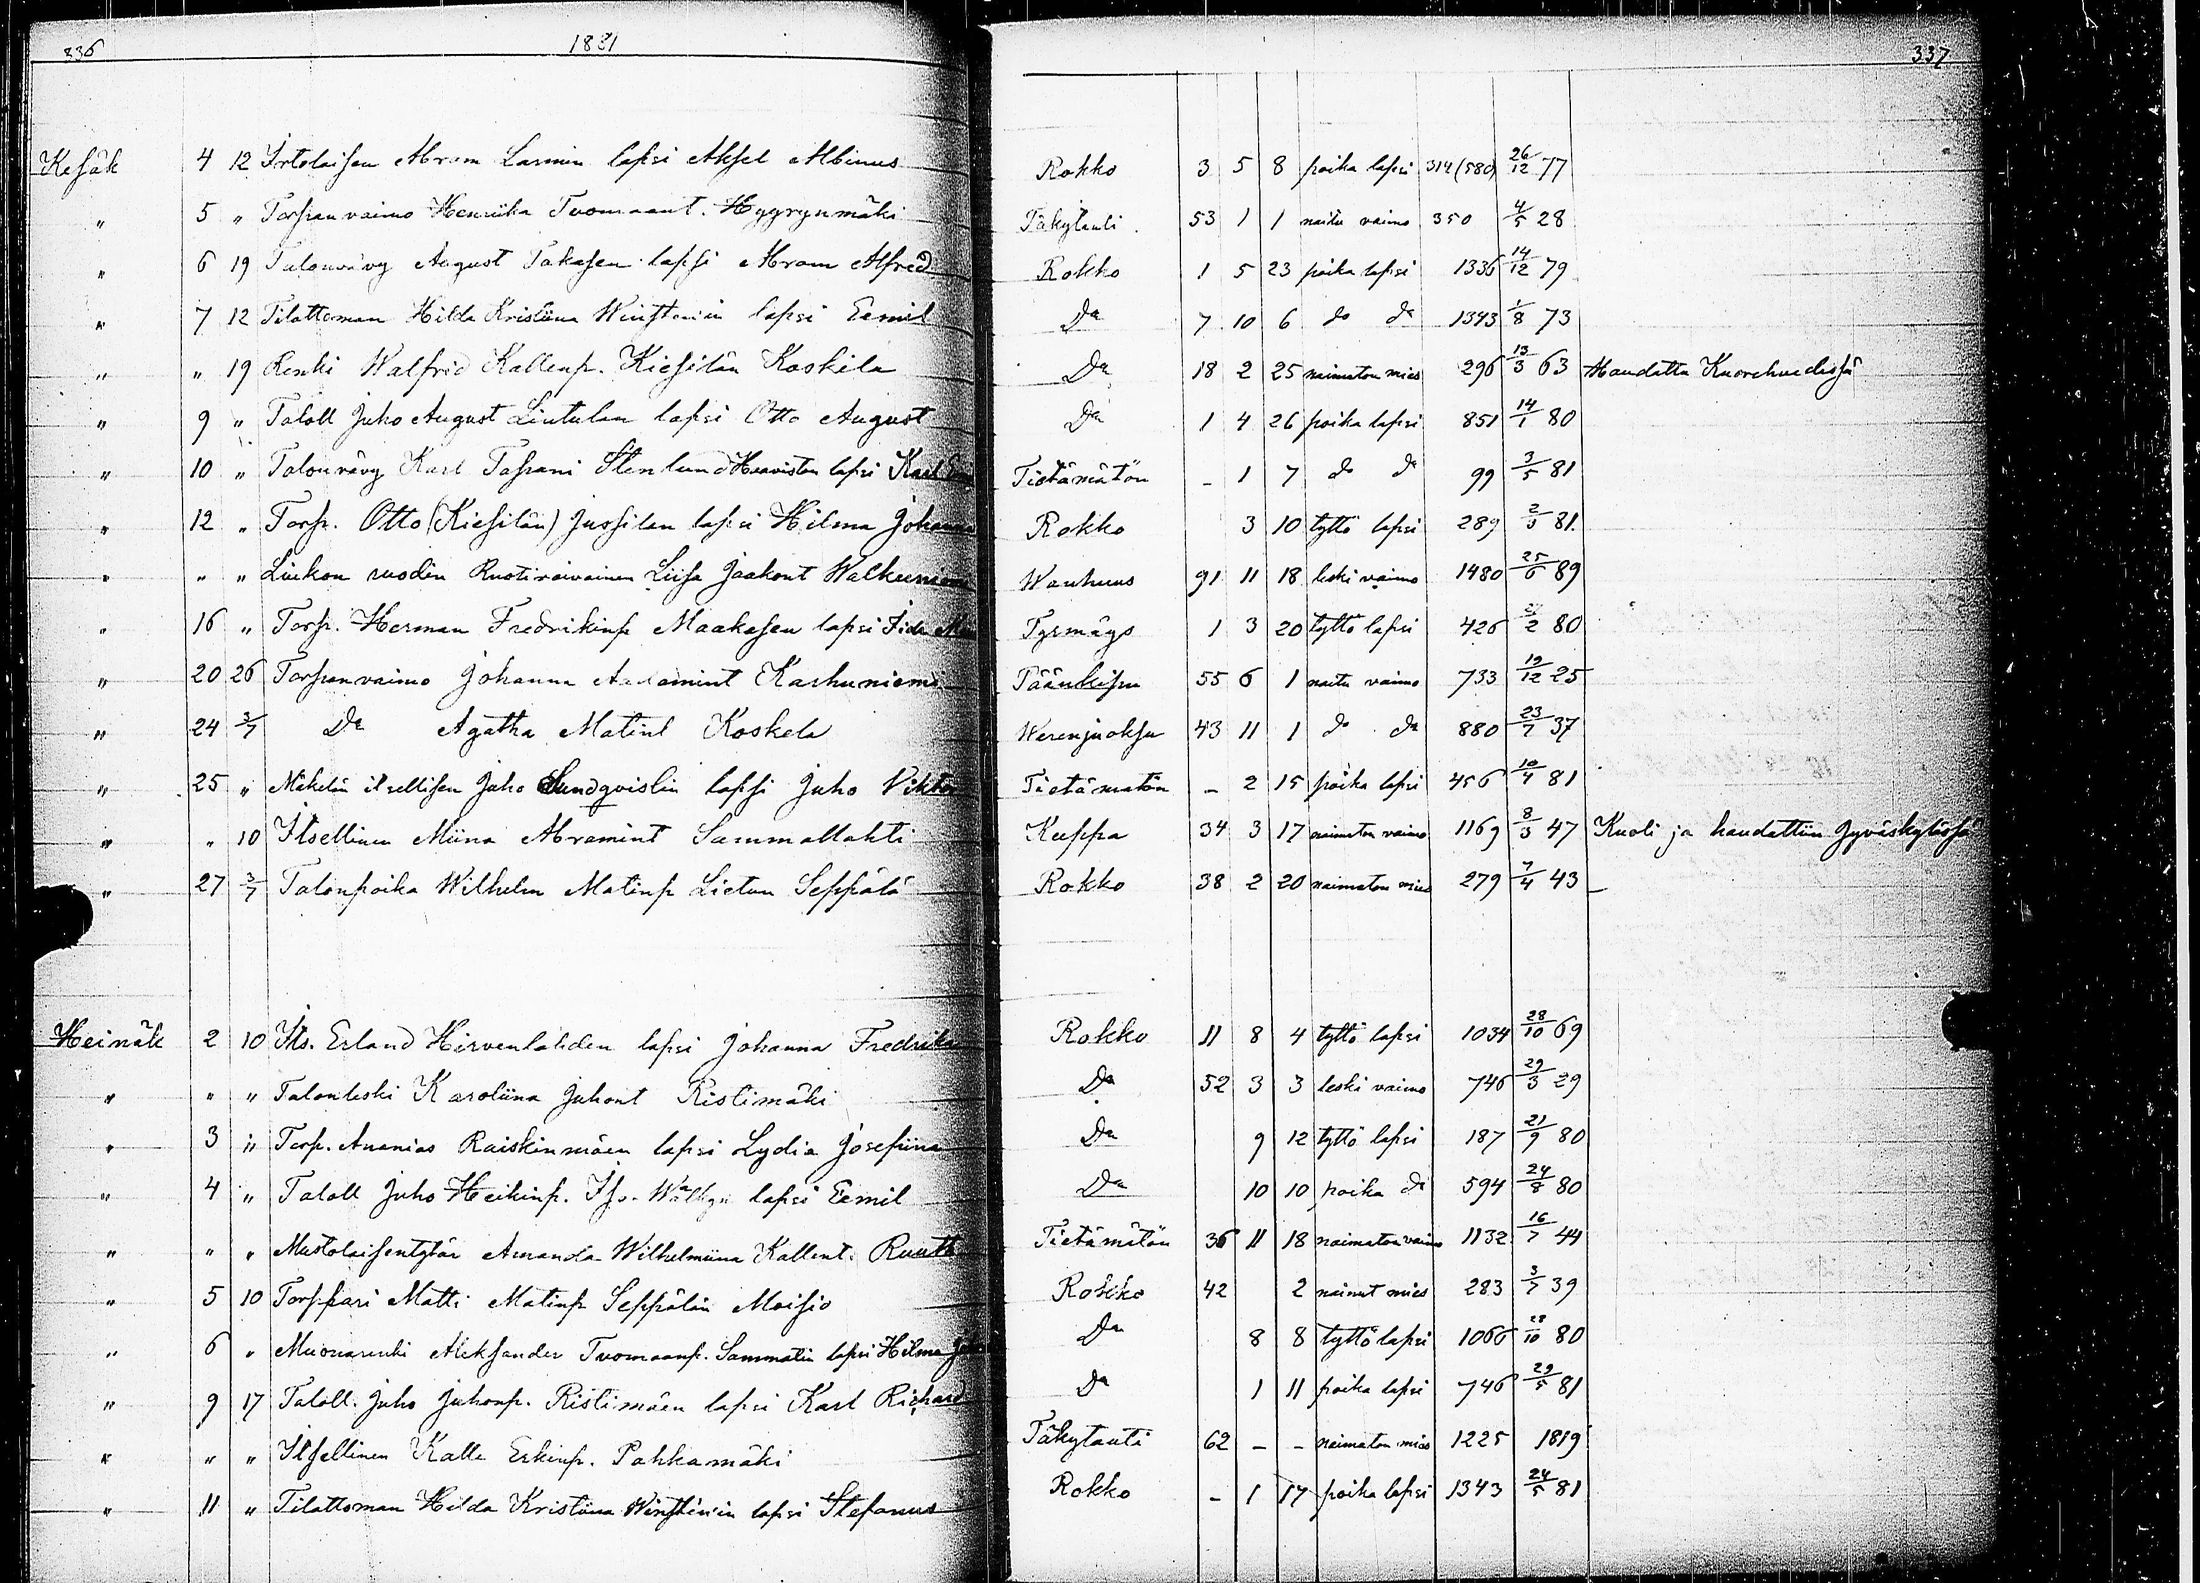 336 1881 337
Kesäk 4 12 Irtolaisen Abram Larmin lapsi Aksel Albinus Rokko 3 5 8 poika lapsi 314 (580) 26/12 77
" 5 " Torpan vaimo Henriika Tuomaant. Hyyrynmäki Täkytauti 53 1 1 naitu vaimo 350 4/5 28
" 6 19 Talonvävy August Takasen lapsi Abram Alfred Rokko 1 5 23 poika lapsi 1336 14/12 79
" 7 12 Tilattoman Hilda Kristiina Winstenin lapsi Eemil Do 7 10 6 do do 1343 1/8 73
" " 19 Renki Walfrid Kallenp. Kiesilän Koskela Do 18 2 25 naimaton mies 296 13/3 63 Haudattu Kuorehvedessä
" 9 " Taloll Juho August Liutulan lapsi Otto August Do 1 4 26 poika lapsi 851 14/1 80
" 10 " Talonvävy Karl Tapani Stenlund Haaviston lapsi Karl Tietämätön _ 1 7 do do 99 3/5 81
" 12 " Torp. Otto (Kiesilän) Jussilan lapsi Hilma Johanna Rokko 3 10 tyttö lapsi 289 2/3 81.
" " " Liukon ruodin Ruotivaivainen Liisa Jaakont Walkeeniemi Wanhuus 91 11 18 leski vaimo 1480 25/6 89
" 16 " Torp. Herman Fredrikinp Maakasen lapsi Fiida 1 3 20 tyttö lapsi 426 2 80
" 20 26 Torpan vaimo Johanna Aadamint Karhuniemi Päänkipu 55 6 1 naitu vaimo 733 19/12 25
" 24 3/7 Do Agatha Matint Koskela Werenjuoksu 43 11 1 do do 880 23/7 37
" 25 " Mäkelän itsellisen Juho Sundqvistin lapsi Juho Viktor Tietämätön _ 2 15 poika lapsi 456 10/4 81
" " 10 Itsellinen Miina Abramint Sammallahti Kuppa 34 3 17 naimaton vaimo 1169 8/3 47 Kuoli ja haudattiin Jyväskylässä
" 27 3/7 Talonpoika Wilhelm Matinp Lietun Seppälä Rokko 38 2 20 naimaton mies 279 7/4 43 _
Heinäk 2 10 Its. Erland Hirvenlahden lapsi Johanna Fredrika Rokko 11 8 4 tyttö lapsi 1034 28/10 69
" " " Talonleski Karoliina Juhont Ristimäki Do 52 3 3 leski vaimo 746 29/3 29
" 3 " Torp. Ananias Raiskinmäen lapsi Lydia Josefiina Do 9 12 tyttö lapsi 187 21/9 80
" 4 " Taloll Juho Heikinp. Iso-Wälkyn lapsi Eemil Do 10 10 poika do 594 24/8 80
" " " Mustolaisentytär Amanda Wilhelmiina Kallent. Ruuth Tietämätön 36 11 18 naimaton vaimo 1132 16/7 44
" 5 10 Torppari Matti Matinp Seppälän Moisio Rokko 42 2 nainut mies 283 3/7 39
" 6 " Muonarenki Aleksander Tuomaanp. Sammatin lapsi Hilma Do 8 8 tyttö lapsi 1066 28/10 80
" 9 17 Taloll. Juho Juhonp. Ristimäen lapsi Karl Richard Do 1 11 poika lapsi 746 29/5 81
" " " Itsellinen Kalle Erkinp. Pahkamäki Täkytauti 62 _ _ naimaton mies 1225 1819
" 11 " Tilattoman Hilda Kristiina Winstenin lapsi Stefanus Rokko _ 1 17 poika lapsi 1343 24/5 81